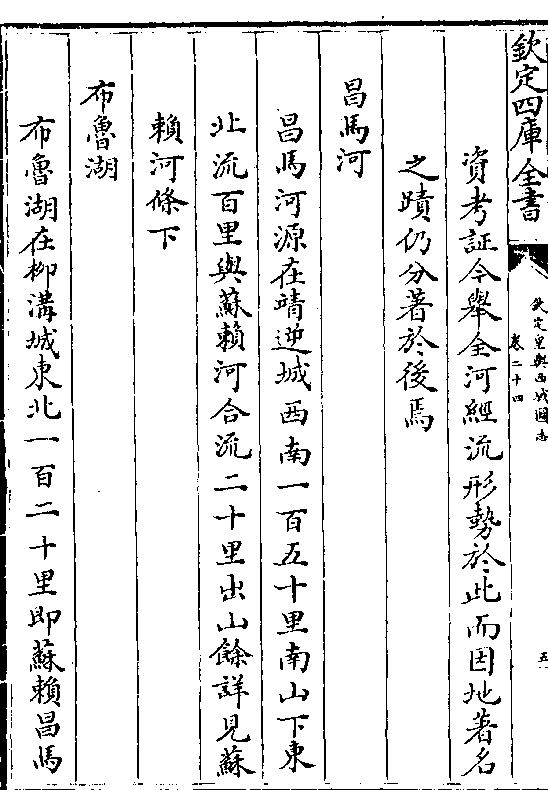 欽定四庫全書
欽定皇輿西域圖志
卷二十四
五
資考証今舉全河經流形勢於此而因地著名
之蹟仍分著於後焉
昌馬河
昌馬河源在靖逆城西南一百五十里南山下東
北流百里與蘇賴河合流二十里出山餘詳見蘇
賴河條下
布魯湖
布魯湖在柳溝城東北一百二十里即蘇賴昌馬